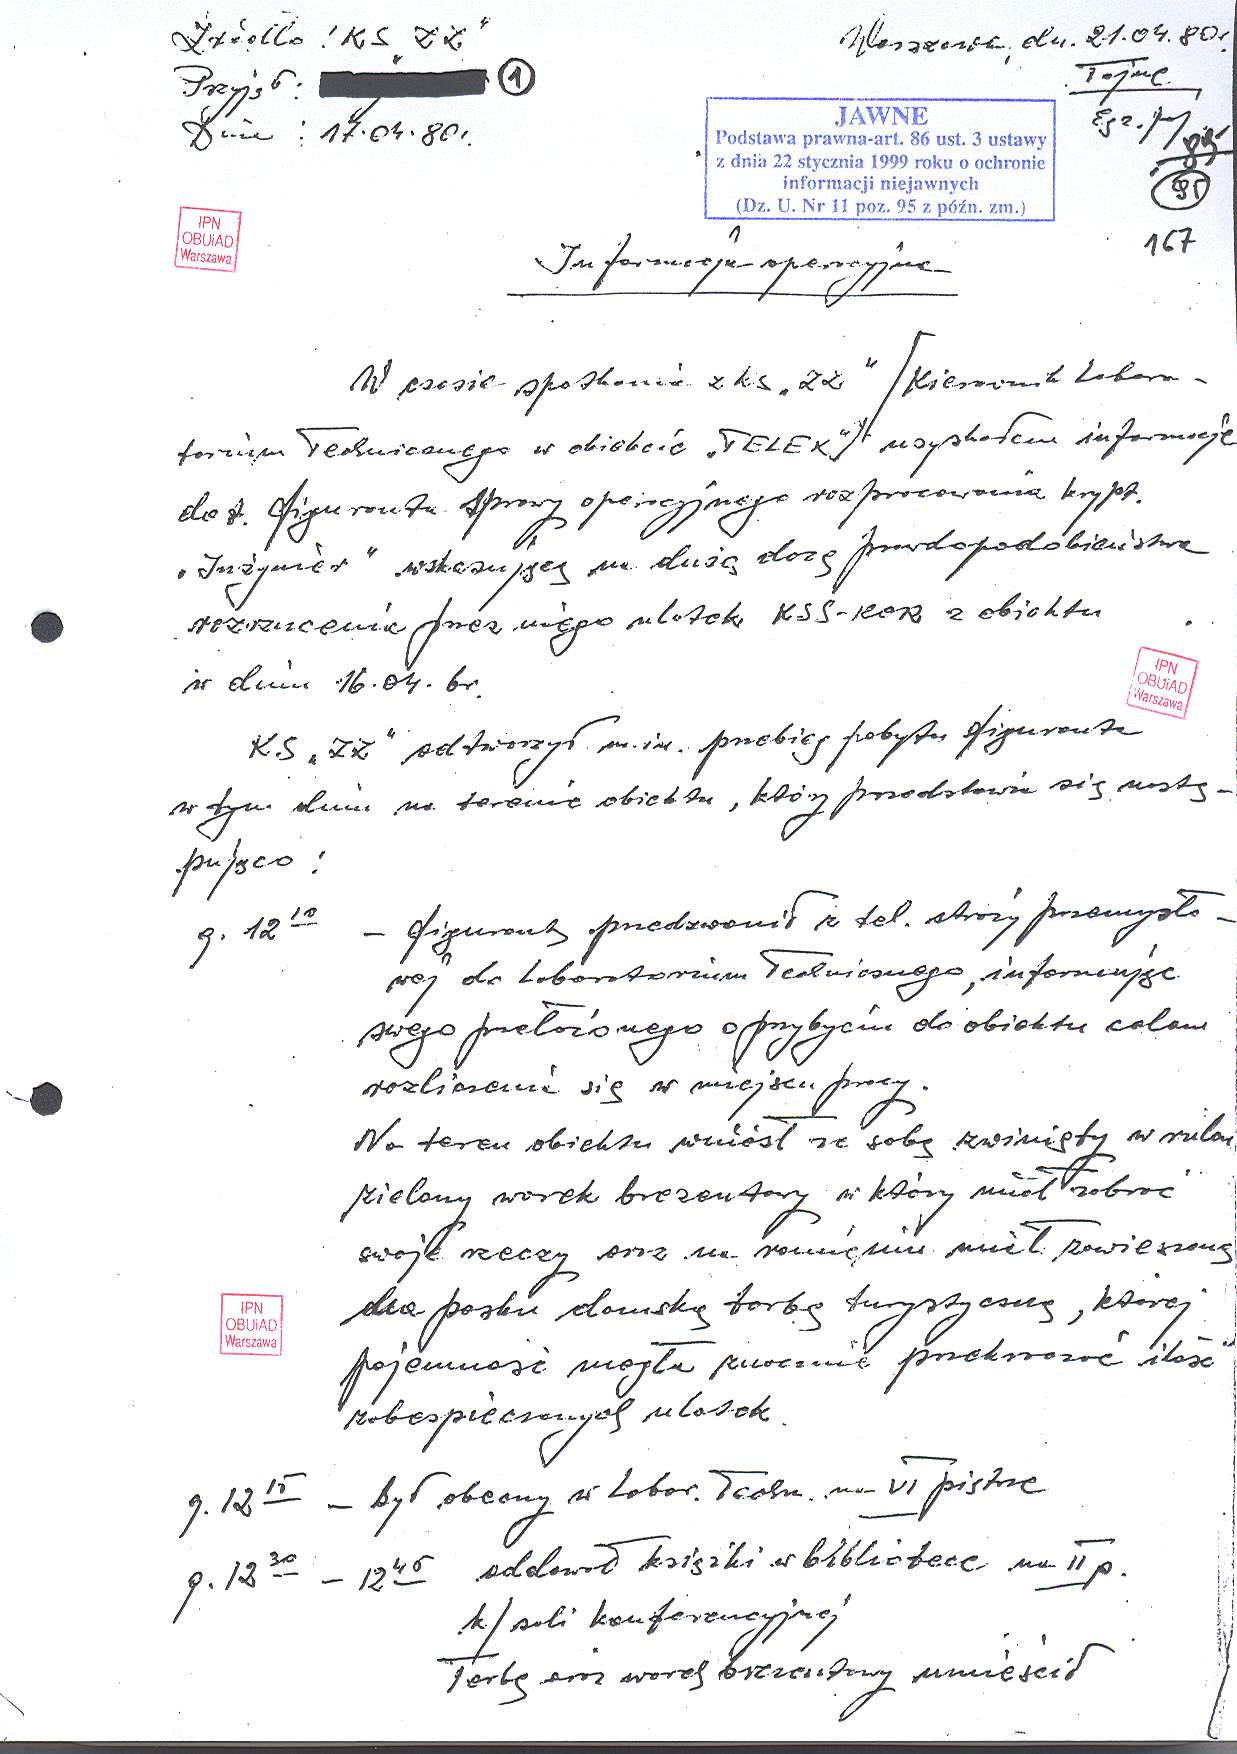 Źródło: KS „ZZ”
Przyjął: 1
Dnia : 17.04.80r.
Warszawa, dn. 21.04.80r.
Tajne
Egz. poj
95
167
JAWNE
Podstawa prawna-art. 86 ust. 3 ustawy
z dnia 22 stycznia 1999 roku o ochronie
informacji niejawnych
(Dz. U. Nr 11 poz. 95 z późn. zm.)
IPN
OBUiAD
Warszawa
Informacja operacyjna
W czasie spotkania z KS „ZZ” /Kierownik Labora-
torium Technicznego w obiekcie „TELEK”/ uzyskałem informacje
dot. figuranta sprawy operacyjnego rozpracowania krypt.
„Inżynier” wskazującą na dużą dozę prawdopodobieństwa
rozrzucenia przez niego ulotek KSS-KOR z obiektu
w dniu 16.04. br.
IPN
OBUiAD
Warszawa
KS „ZZ” odtworzył m.in. przebieg pobytu figuranta
w tym dniu na terenie obiektu, który przedstawia się nastę-
pująco:
g. 12 10 – figurant przedzwonił z tel. straży przemysło-
wej do Laboratorium Technicznego, informując
swego przełożonego o przybyciu do obiektu celem
rozliczenia się w miejscu pracy.
Na teren obiektu wniósł ze sobą zwinięty w rulon
zielony worek brezentowy w który miał zabrać
swoje rzeczy oraz na ramieniu miał zawieszoną
na pasku damską torbę turystyczną, której
pojemność mogła znacznie przekraczać ilość
zabezpieczonych ulotek.
IPN
OBUiAD
Warszawa
g. 12 15 – był obecny w Labor. Techn. na VI piętrze
g. 12 30 – 12 45 oddawał książki w bibliotece na II p.
k/ sali konferencyjnej
Torbę oraz worek brezentowy umieścił